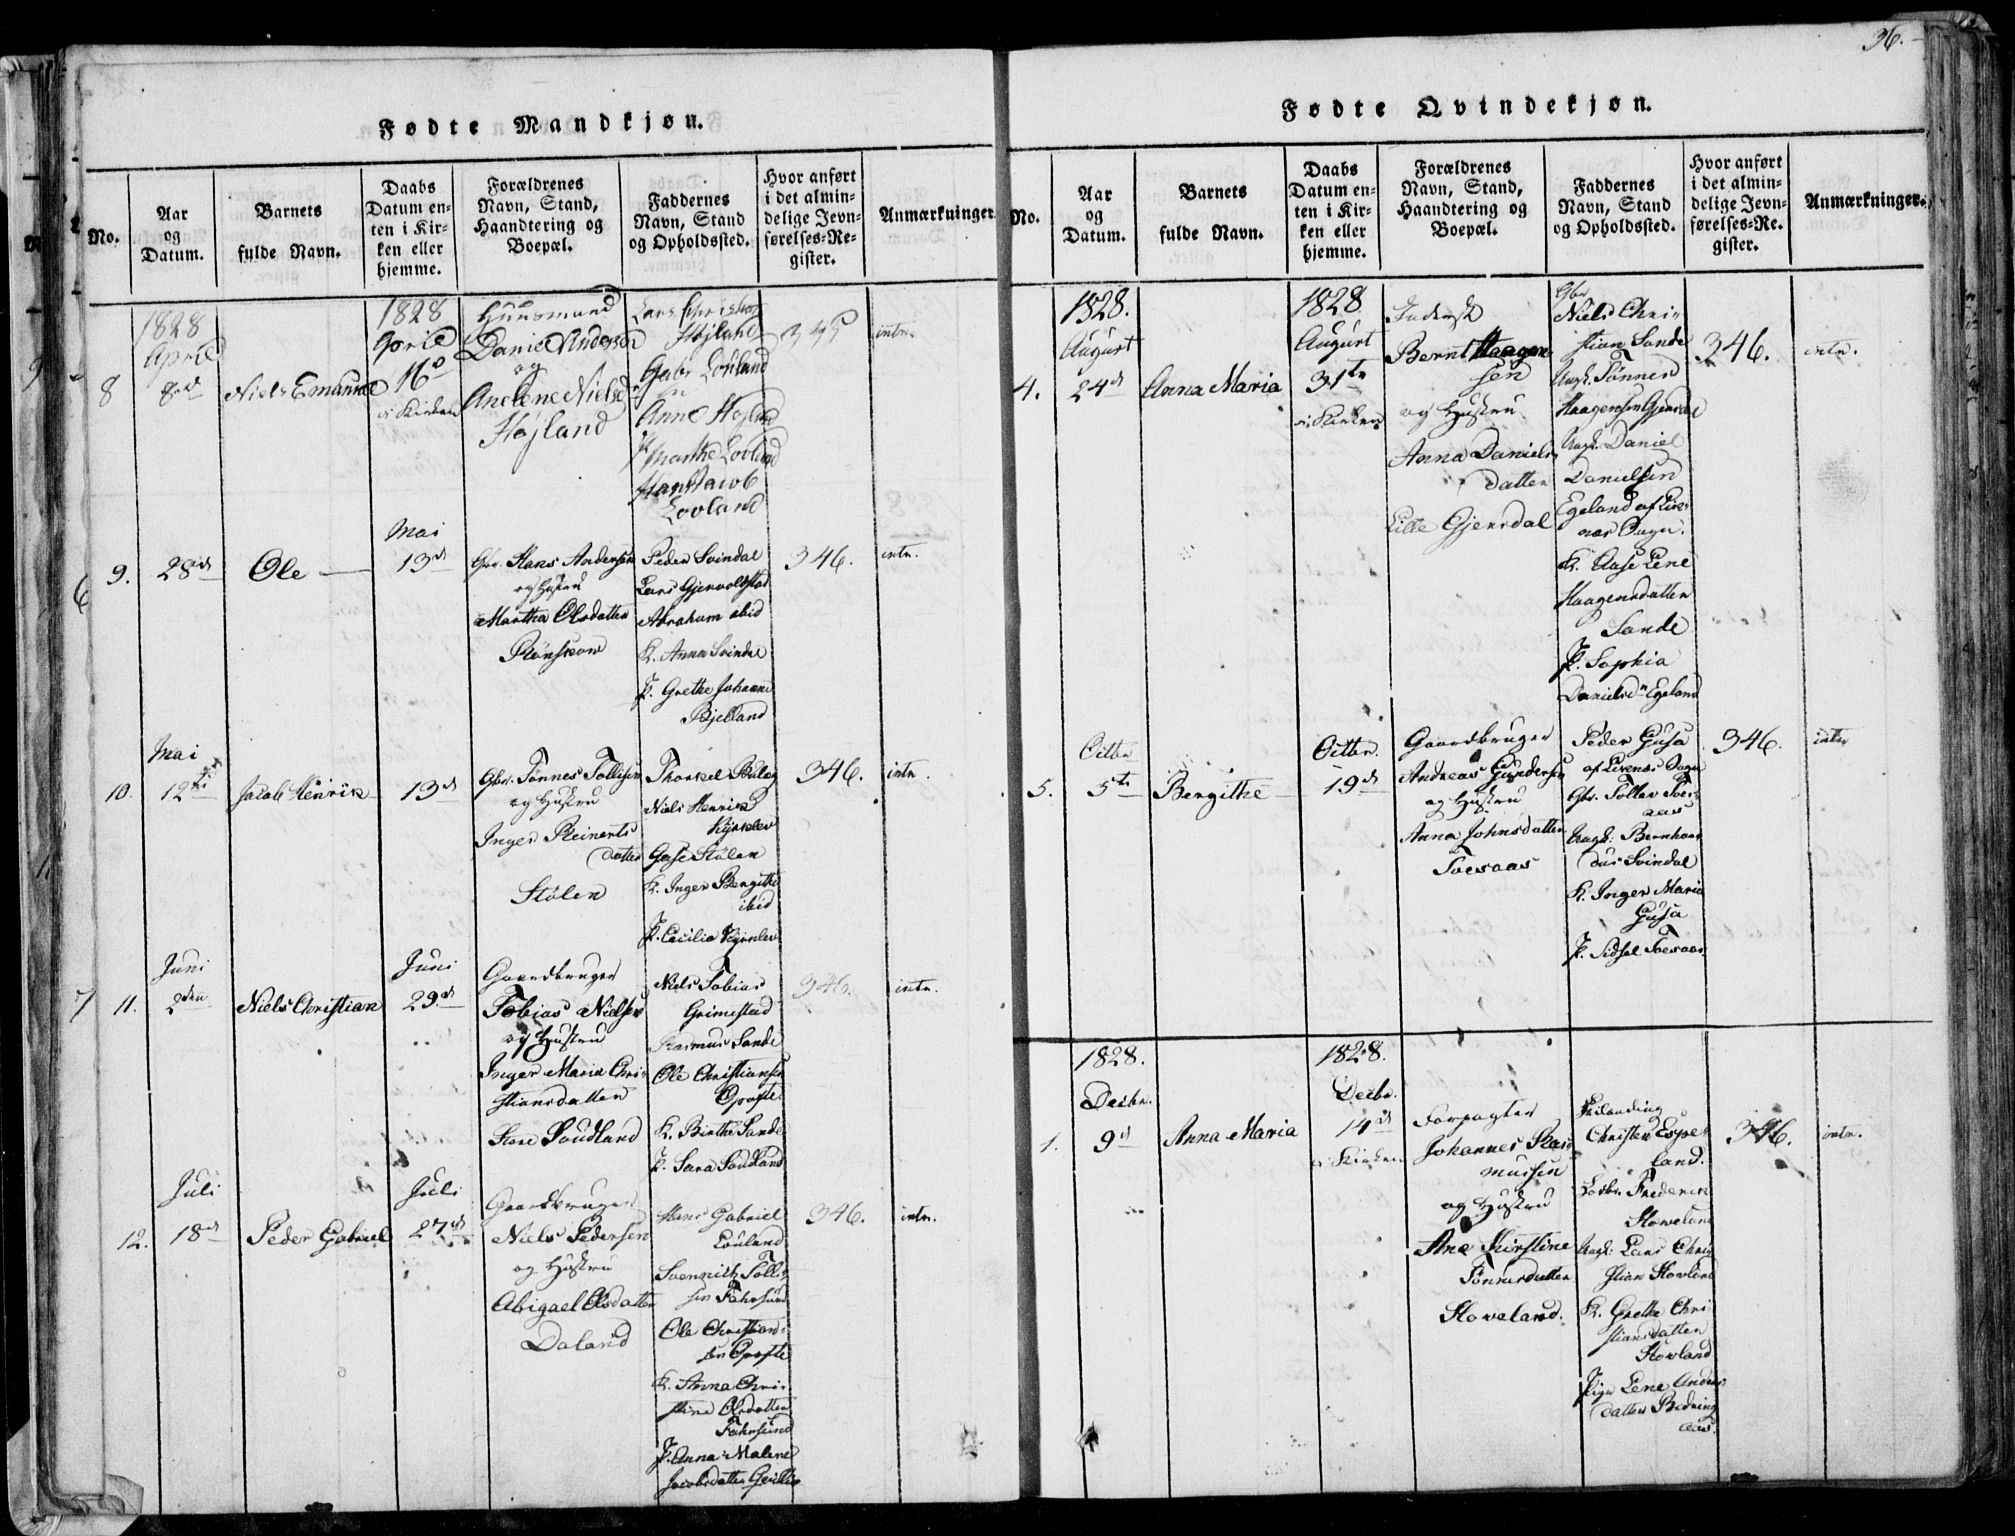 36.
Fødte Mandkjøn.
No.
Aar
og
Datum.
Barnets
fulde Navn.
Daabs
Datum en-
ten i Kir-
ken eller
hjemme.
Forældrenes
Navn, Stand,
Haandtering og
Boepæl.
Faddernes
Navn, Stand
og Opholdssted.
Hvor anført
i det almin-
delige Jevn-
førelses-Re-
gister.
Anmærkninger
8
1828
April
8de
Niels Emanuel
1828
April
i Kirken
Huusmand
Daniel Andersen
og
Anelene Nielsd
Højland
Højland
Gabr Louland
Anne Højland
Marthe Lovland
Hans Jacob
Lovland
345
intn.
9.
28de
Ole
Mai
13de
Gbr. Hans Andersen
og Hustru
Martha Olsdatter
Rønskow
Peder Svindal
Lars Gjervoldstad
Abraham ibid
K. Anna Svindal
P. Grethe Johanne
Bjelland
346.
intn.
10.
Mai
12te
Jacob Henrik
13de
Gbr. Tønnes Tollisen
og Hustru
Inger Reinerts
datter
Stølen
Thorkel Bulæg
Niels Henrik
Kjørrelev
Gase Stølen
K. Inger Bergithe
ibid
P. Cecilia Kjørrelev
346.
intn.
11.
Juni
2den
Niels Christian
Juni
29de
Gaardbruger
Tobias Nielsen
og Hustru
Inger Maria Chri-
stiansdatter
Store Soudland
Niels Tobias
Grimestad
Rasmus Sande
Ole Christiansen
Opofte
K. Birthe Sande
P. Sara Soudland
346.
intn.
12.
Juli
18de
Peder Gabriel
Juli
27de
Gaardbruger
Niels Pedersen
og Hustru
Abigael Olsdatter
Daland
Hans Gabriel
Louland
Svennich Tolli-
sen Fahrsund
Ole Christian-
sen Opofte
K. Anna Chri-
stine Olsdatter
Fahrsund
P. Anna Malene
Jacobsdatter
346.
intn.
Fødte Qvindekjøn.
No.
Aar
og
Datum.
Barnets
fulde Navn.
Daabs
Datum en-
ten i Kir-
ken eller
hjemme.
Forældrenes
Navn, Stand,
Haandtering og
Boepæl.
Faddernes
Navn, Stand
og Opholdssted.
Hvor anført
i det almin-
delige Jevn-
førelses-Re-
gister.
Anmærkninger.
4.
1828.
August
24de
Anna Maria
1828
August
31te
i Kirken
Inderst
Bernt Haagen
sen
og Hustru
Anna Daniels
datter
Lille Gjersdal
Gbr
Niels Chri-
stian Sande
Ungk. Tønnes
Haagensen Gjersdal
Ungk. Daniel
Danielsen
Egeland af Lik-
næs Sogn.
K. Aase Lene
Haagensdatter
Sande
P. Sophia
Danielsdr Egeland
346.
intn.
5.
Octbr
5te
Bergithe
Octbr.
19de
Gaardbruger
Andreas Gundersen
og Hustru
Anna Johnsdatter
Tvesaas
Peder Gusa
af Liknæs Sogn
Gbr. Tollev Tves-
aas
Ungk. Bernhar-
dus Svindal
K. Inger Maria
Gusa
P. Sidsel Tvesaas
346.
intn
1.
1828.
Decbr.
9de
Anna Maria
1828.
Decbr.
14de
i Kirken
Forpagter
Johannes Ras-
mussen
og Hustru
Ane Kirstine
Tønnesdatter
Stoveland.
Christen Espe-
land.
Frederik
Stoveland
Ungk. Lars Chri-
stian Stovland
K. Grethe Chri-
stiansdatter
Stovland
Pige Lene Anders-
datter Bedring-
aas.
346.
intn.